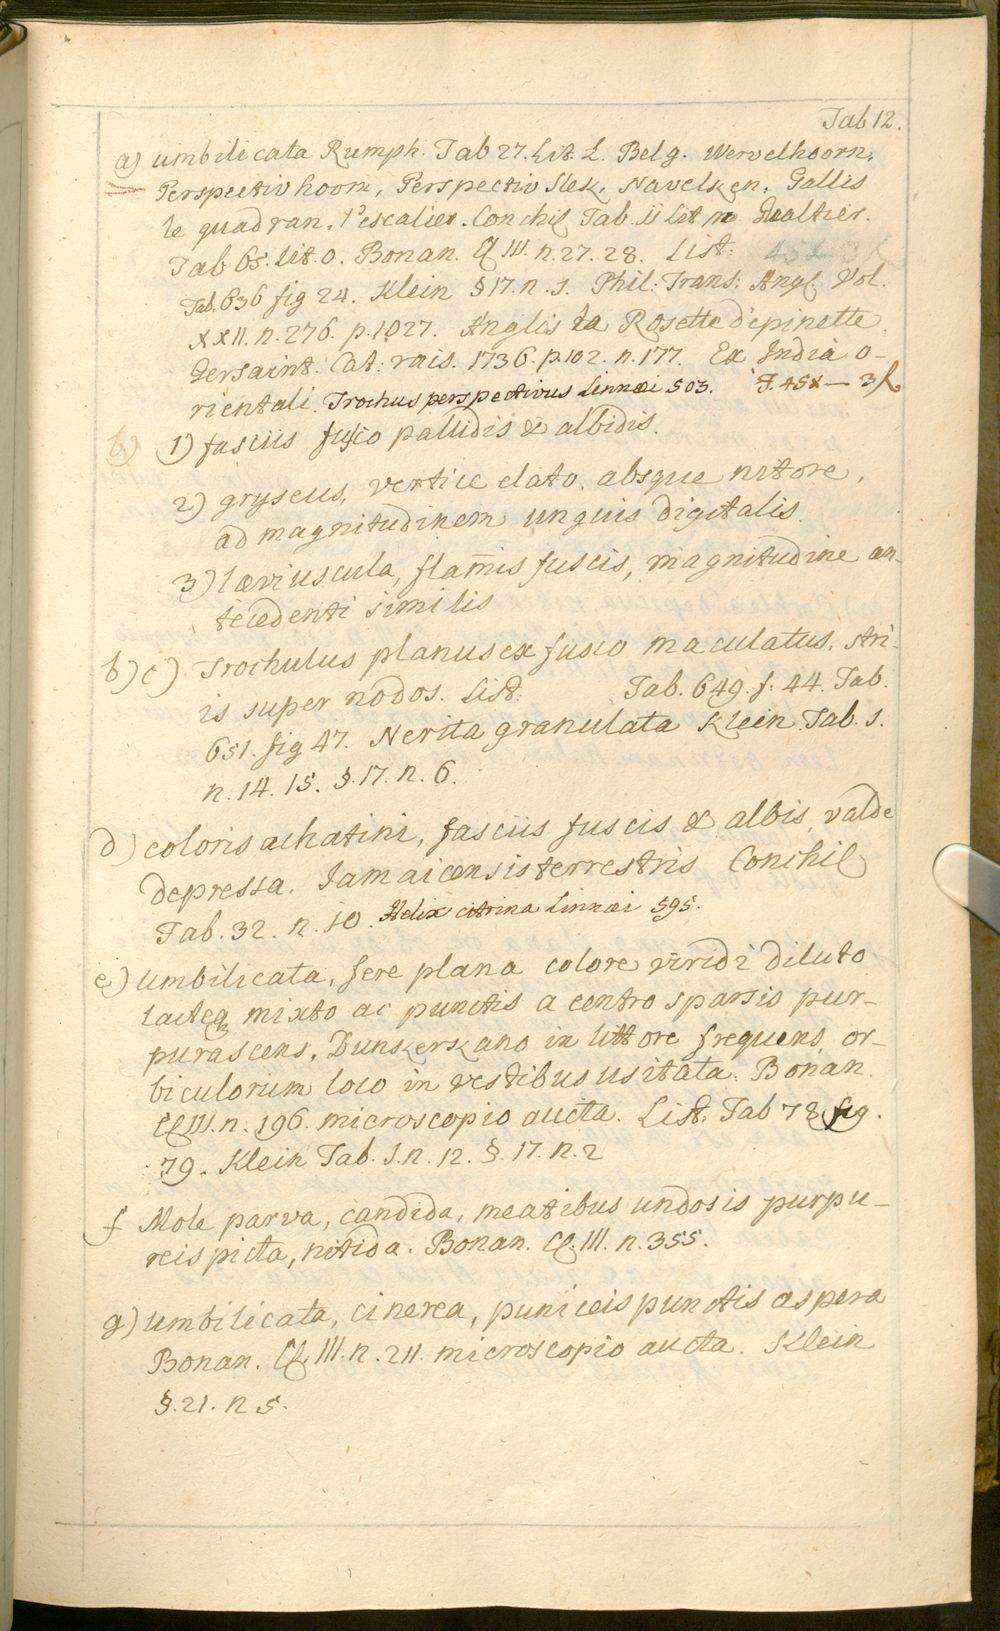 Tab 12.
a) umbilicata Rumph. Tab 27. Lit. L. Belg. Wervelhoorn,
Perspectivhoorn, Perspectiv slek, Navelsken, Gallis
le quadran, l'escalier. Conchil Tab. ii Lit m Gualtier.
Tab 65. Lit. O. Bonan. Cl III. n. 27. 28. List:
Tab. 636 fig 24. Klein §17. n. 1. Phil: Trans: Angl. Vol.
XXII. n. 276. p. 1027. Anglis la Rosette d'epinette
Gersaint. Cat: rais. 1736. p. 102. n. 177. Ex India o-
rientali. Trochus perspectivus Linnæi 503. 45x — 3
b) 1) fasciis fusco pallidis & albidis.
2) gryseus, vertice elato, absque nitore,
ad magnitudinem unguis digitalis
3) læviuscula, flam̄is fuscis, magnitudine an-
tecedenti similis
b) c) Trochulus planus ex fusco maculatus, stri-
is super nodos. List: Tab. 649. f. 44. Tab.
651. fig 47. Nerita granulata Klein Tab. 1.
n. 14. 15. §. 17. n. 6.
d) coloris achatini, fasciis fuscis & albis, valde
depressa. Jamaicensis terrestris Conchil
Tab. 32. n. 10. Helix citrina Linnæi 595.
e) umbilicata, fere plana colore viridi diluto
lacteq mixto ac punctis a centro sparsis pur-
purascens. Dunskerskano in littore frequens, or-
biculorum loco in vestibus usitata. Bonan.
Cl III. n. 196. microscopio aucta. List. Tab 78 fig.
79. Klein Tab. 1. n. 12. §. 17. n. 2
f Mole parva, candida, meatibus undosis purpu-
reis picta, nitida. Bonan. Cl. III. n. 355.
g) umbilicata, cinerea, puniceis punctis aspera
Bonan. Cl. III. n. 211. microscopio aucta. Klein
§. 21. n 5.